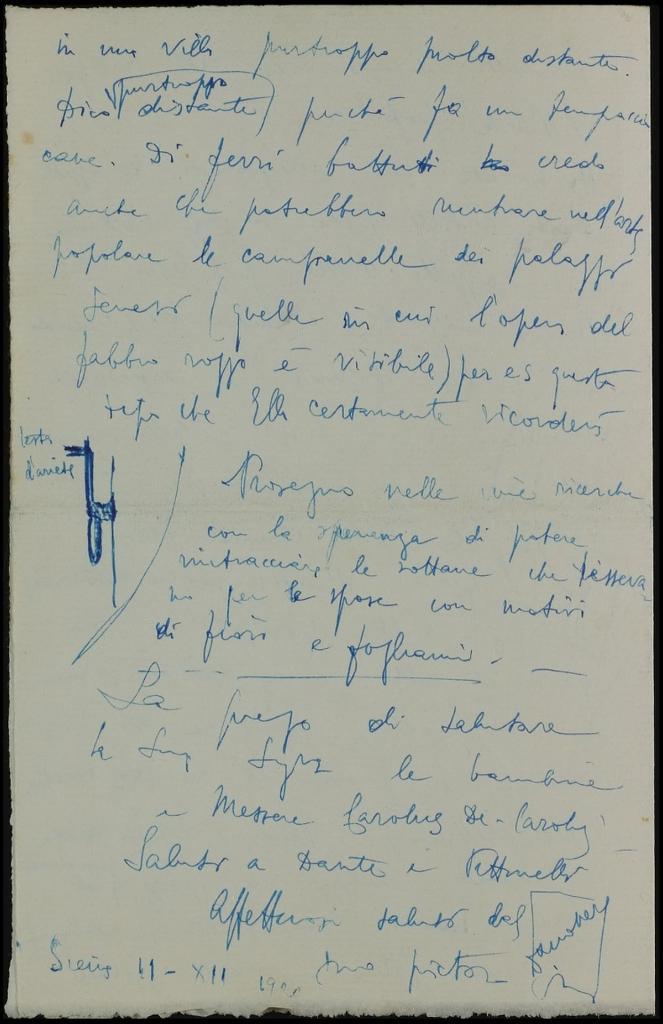 in una villa purtroppo molto distante.
Dico purtroppo distante perché fa un tempaccio
cane. Di ferri battuti credo
anche che potrebbero rientrare nell'arte
popolare le campanelle dei palazzi
senesi (quelle in cui l'opera del
fabbro rozzo è visibile) per es questo
tipo che Ella certamente ricorderà
testa
d'ariete
Proseguo nelle mie ricerche
con la speranza di potere
rintracciare le sottane che tesseva-
no per le spose con motivi
di fiori e fogliami. —
La prego di salutare
la Sig le bambine
e Messere Carolus De-Carolis
Saluti a Dante e
Affettuosi saluti dal
Siena 11 - XII suo pictor